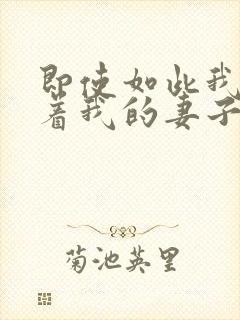 即使如此我
着我的妻子
菊池英里